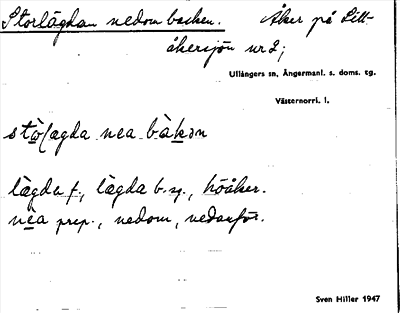 Storlägdan nedom backen. Åker på Litt-
åkersjön nr 2;
Ullångers sn, Ångermanl. s. doms. tg.
Västernorrl. l.
nea bàkən
lägda f., lägda b.sg., höåker.
nea prep., nedom, nedanför.
Sven Hiller 1947